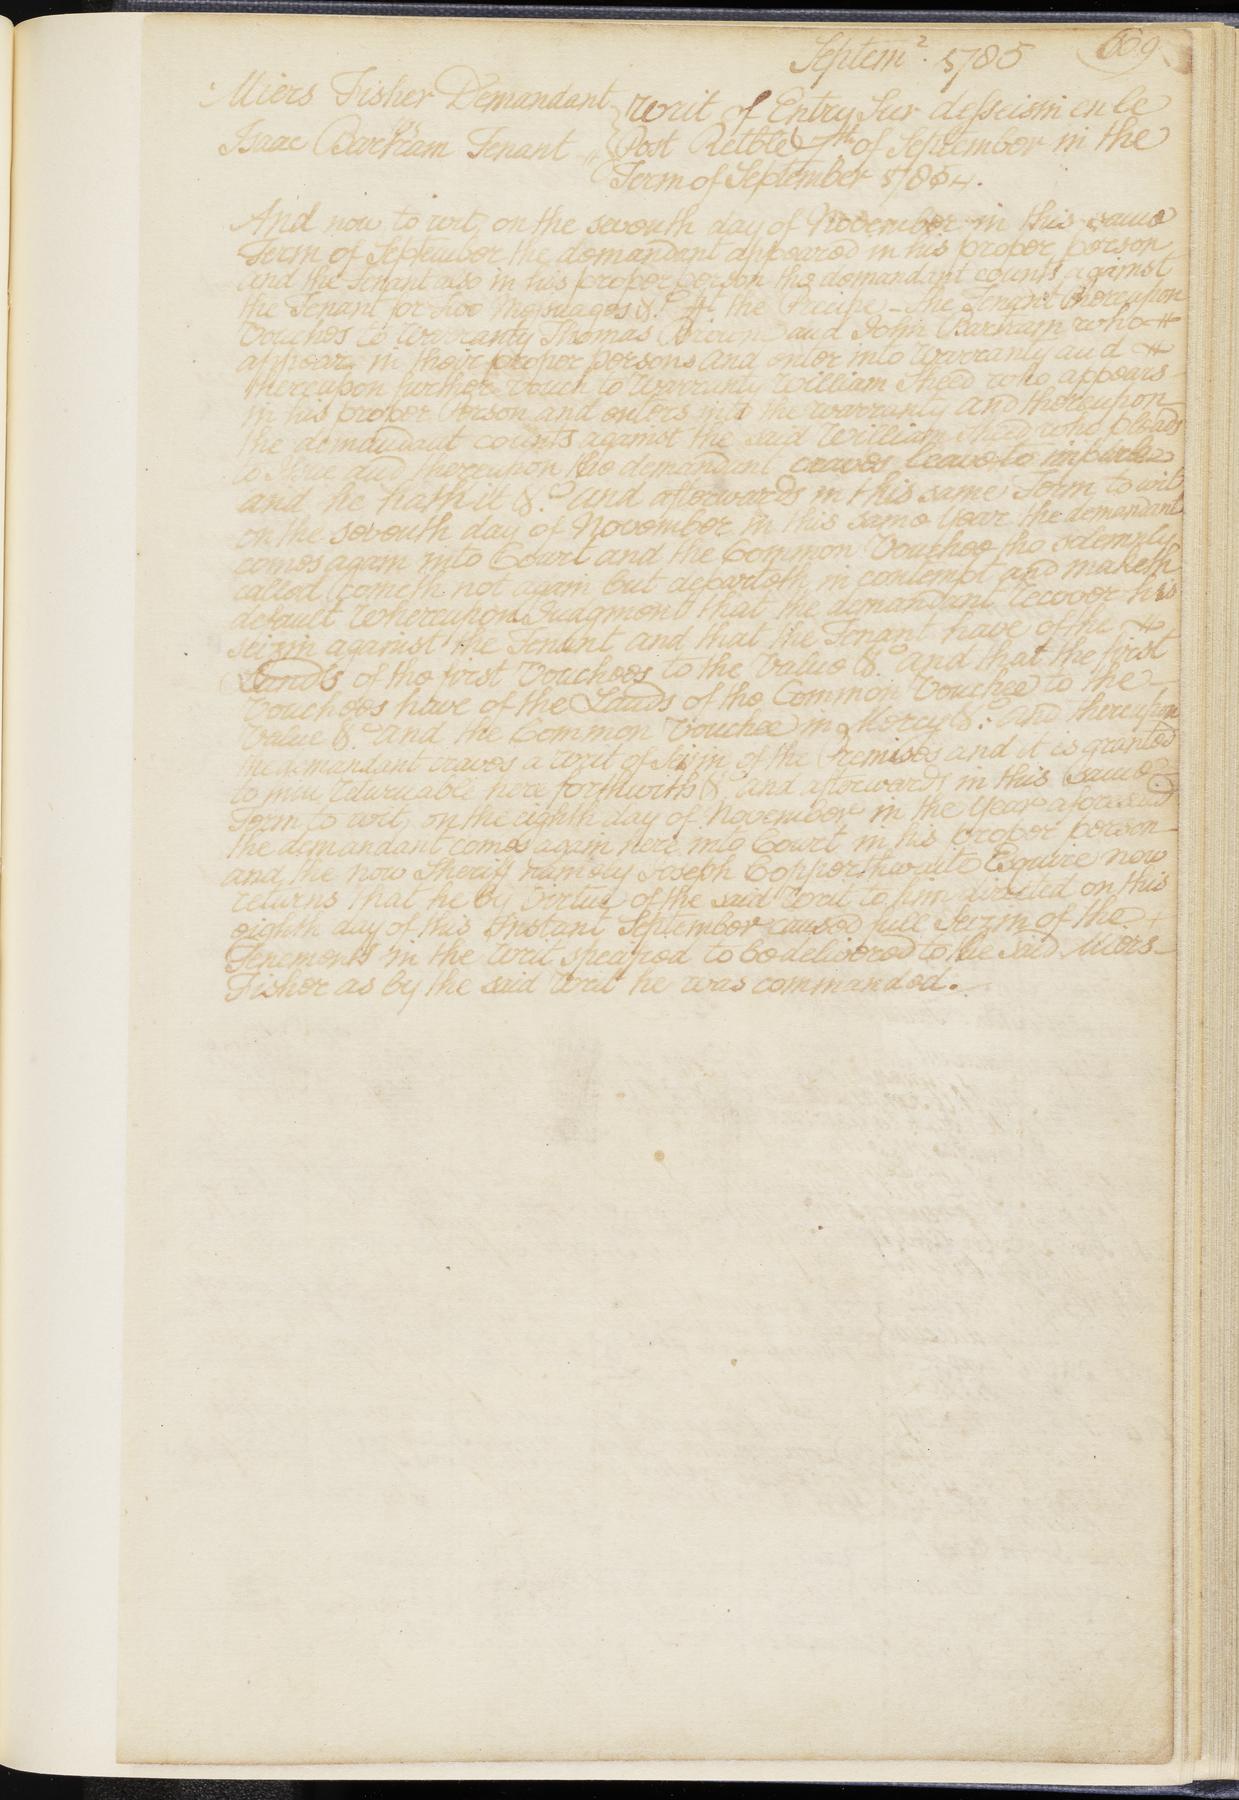 Septemr. 1785
609
Miers Fisher Demandant
vs
Isaac Barkram Tenant
Writ of Entry Sur desseisin en le
Post Retble 4th of September in the
Term of September 1784.
And now to wit, on the seventh day of November in this same
Term of September the demandant appeared in his proper person
and the Tenant also in his proper person the demandant counts against
the Tenant for two Messuages &c. the Precipe - the Tenant thereupon
Vouches to Warranty Thomas Brown and John Barkram who
appear in their proper persons and enter into Warranty and
thereupon further Vouch to Warranty William Sheed who appears
in his proper Person and enters into the warranty and thereupon
the demandant counts against the said William Sheed who pleads
to Issue and thereupon the demandant craves leave to imparle
and he hath it &c. and afterwards in this same Term to wit
on the seventh day of November in this same Year the demandant
comes again into Court and the Common Vouchee tho solemnly
called cometh not again but departeth in contempt and maketh
default Whereupon Judgment that the demandant recover his
seizin against the Tenent and that the Tenant have of the
Lands of the first Vouchees to the Value &c. and that the first
Vouchees have of the Lands of the Common Vouchee to the
Value &c. and the Common Vouchee in Mercy &c. and thereupon
the demandant craves a writ of Seizin of the Premises and it is granted
to him returnable here forthwith &c. and afterwards in this same
Term to wit, on the eighth day of November in the Year aforesaid
the demandant comes again here into Court in his proper person
and the now Sheriff namely Joseph Copperthwaite Esquire now
returns that he by Virtue of the said Writ to him directed on this
eighth day of this Instant September caused full Seizin of the
Tenements in the Writ specified to be delivered to the said Miers
Fisher as by the said Writ he was commanded.